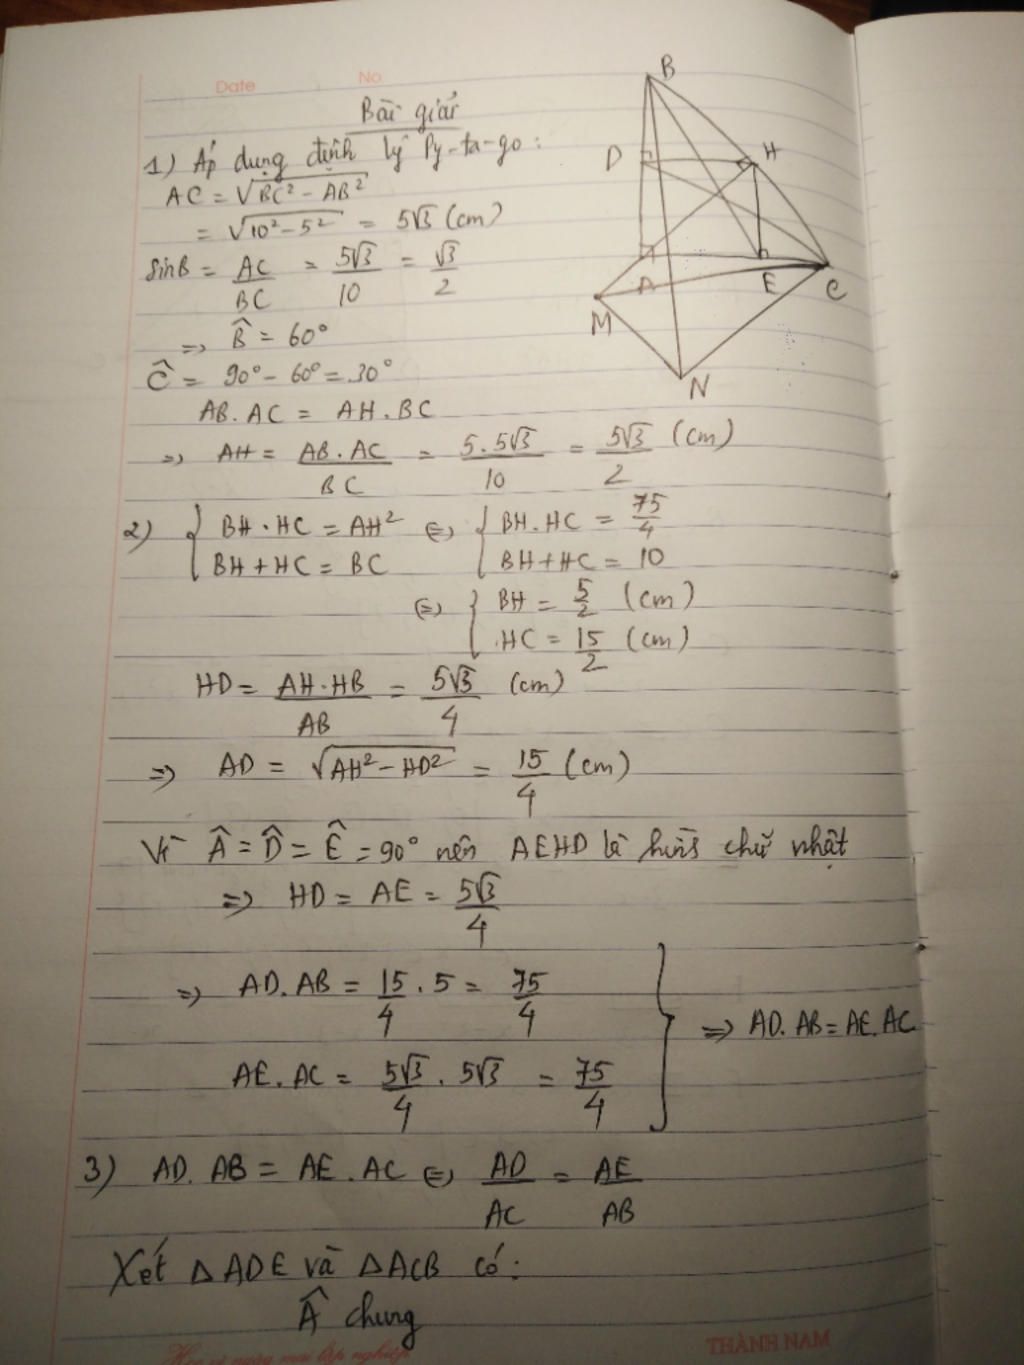 Date No
Bài giải
1) Áp dụng định lý Py-ta-go:
AC = √BC² - AB²
= √10² - 5² = 5√3 (cm)
sinB = AC/BC = 5√3/10 = √3/2
=> B̂ = 60°
Ĉ = 90° - 60° = 30°
AB. AC = AH. BC
=> AH = AB. AC/BC = 5. 5√3/10 = 5√3/2 (cm)
2) { BH. HC = AH² (=) { BH. HC = 75/4
BH + HC = BC BH + HC = 10
(=) { BH = 5/2 (cm)
HC = 15/2 (cm)
HD = AH. HB/AB = 5√3/4 (cm)
=> AD = √AH² - HD² = 15/4 (cm)
Vì Â = D̂ = Ê = 90° nên AEHD là hình chữ nhật
=> HD = AE = 5√3/4
=> AD. AB = 15/4 . 5 = 75/4
=> AD. AB = AE. AC
AE. AC = 5√3/4 . 5√3 = 75/4
3) AD. AB = AE. AC (=) AD/AC = AE/AB
Xét △ADE và △ACB có:
Â chung
B
D
H
A
E
C
M
N
THÀNH NAM